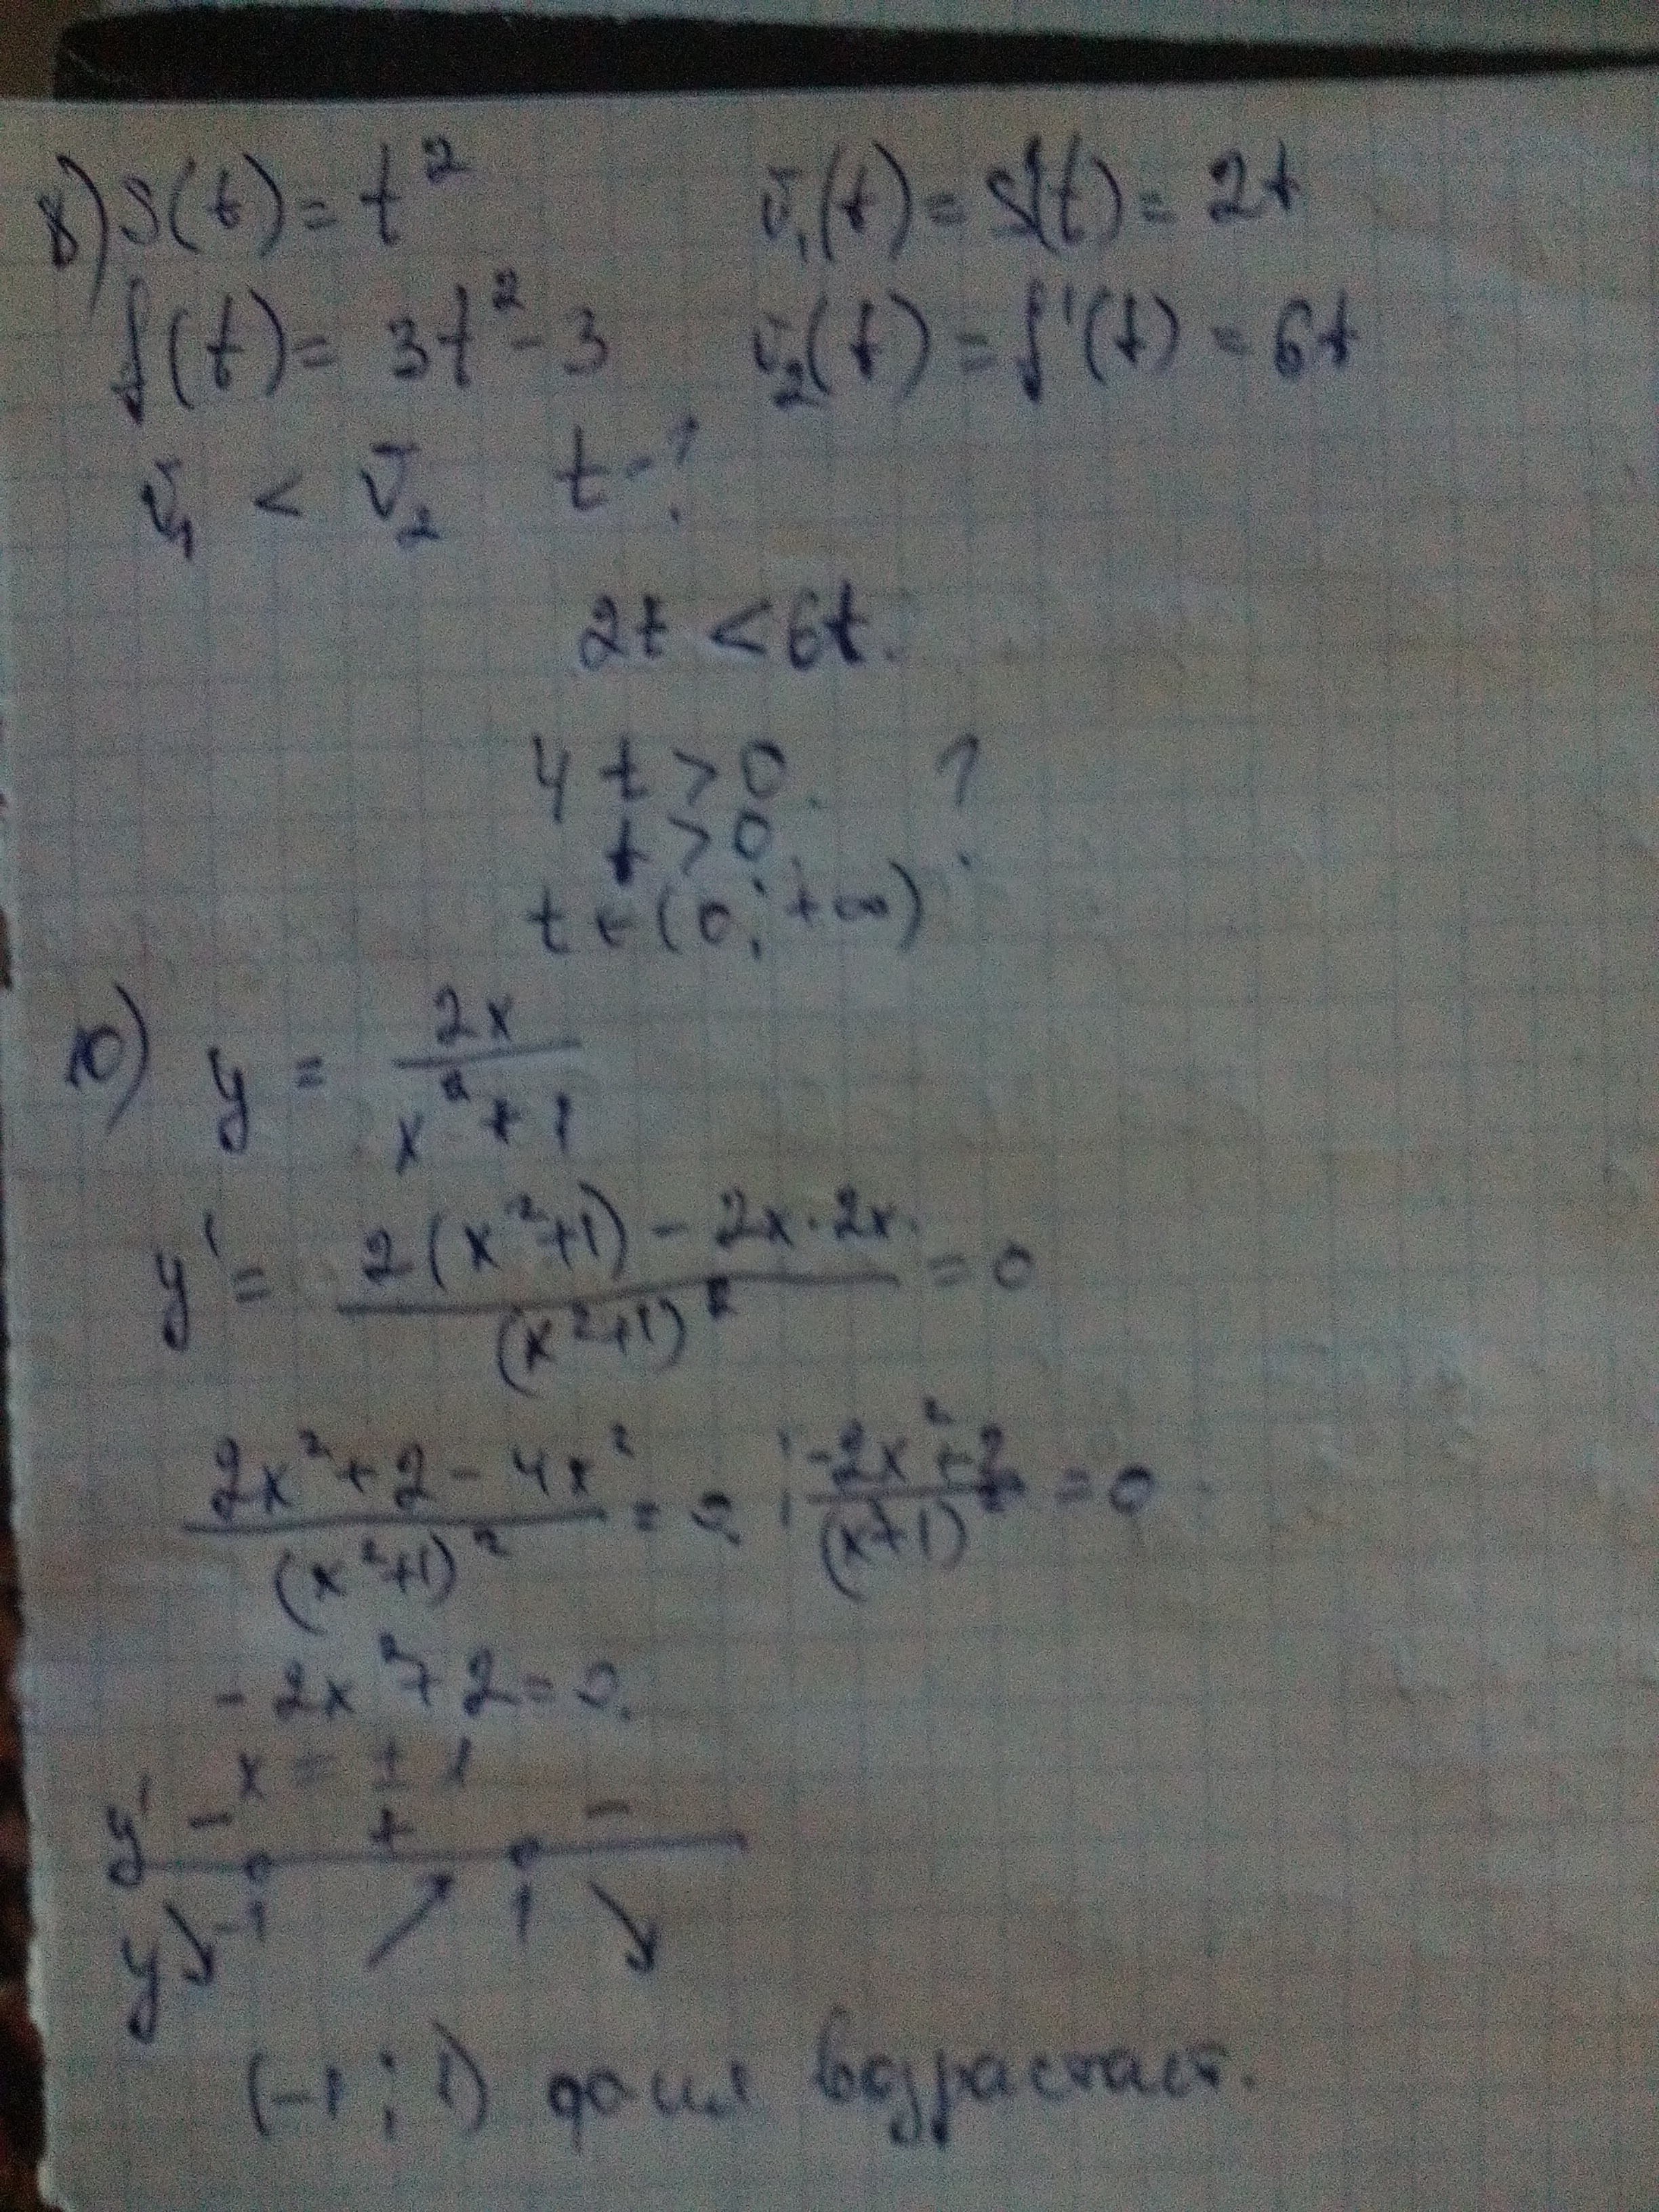 8) S(t) = t² v₁(t) = S'(t) = 2t
f(t) = 3t² - 3 v₂(t) = f'(t) = 6t
v₁ < v₂ t - ?
2t < 6t.
4t > 0. ?
t > 0
t ∈ (0; +∞)
10) y = 2x / (x² + 1)
y' = (2(x²+1) - 2x·2x) / (x²+1)² = 0
(2x² + 2 - 4x²) / (x²+1)² = 0 ; (-2x² + 2) / (x²+1)² = 0
-2x² + 2 = 0.
x = ± 1
y' - + -
y ↘ -1 ↗ 1 ↘
(-1 ; 1) ф-ция возрастает.